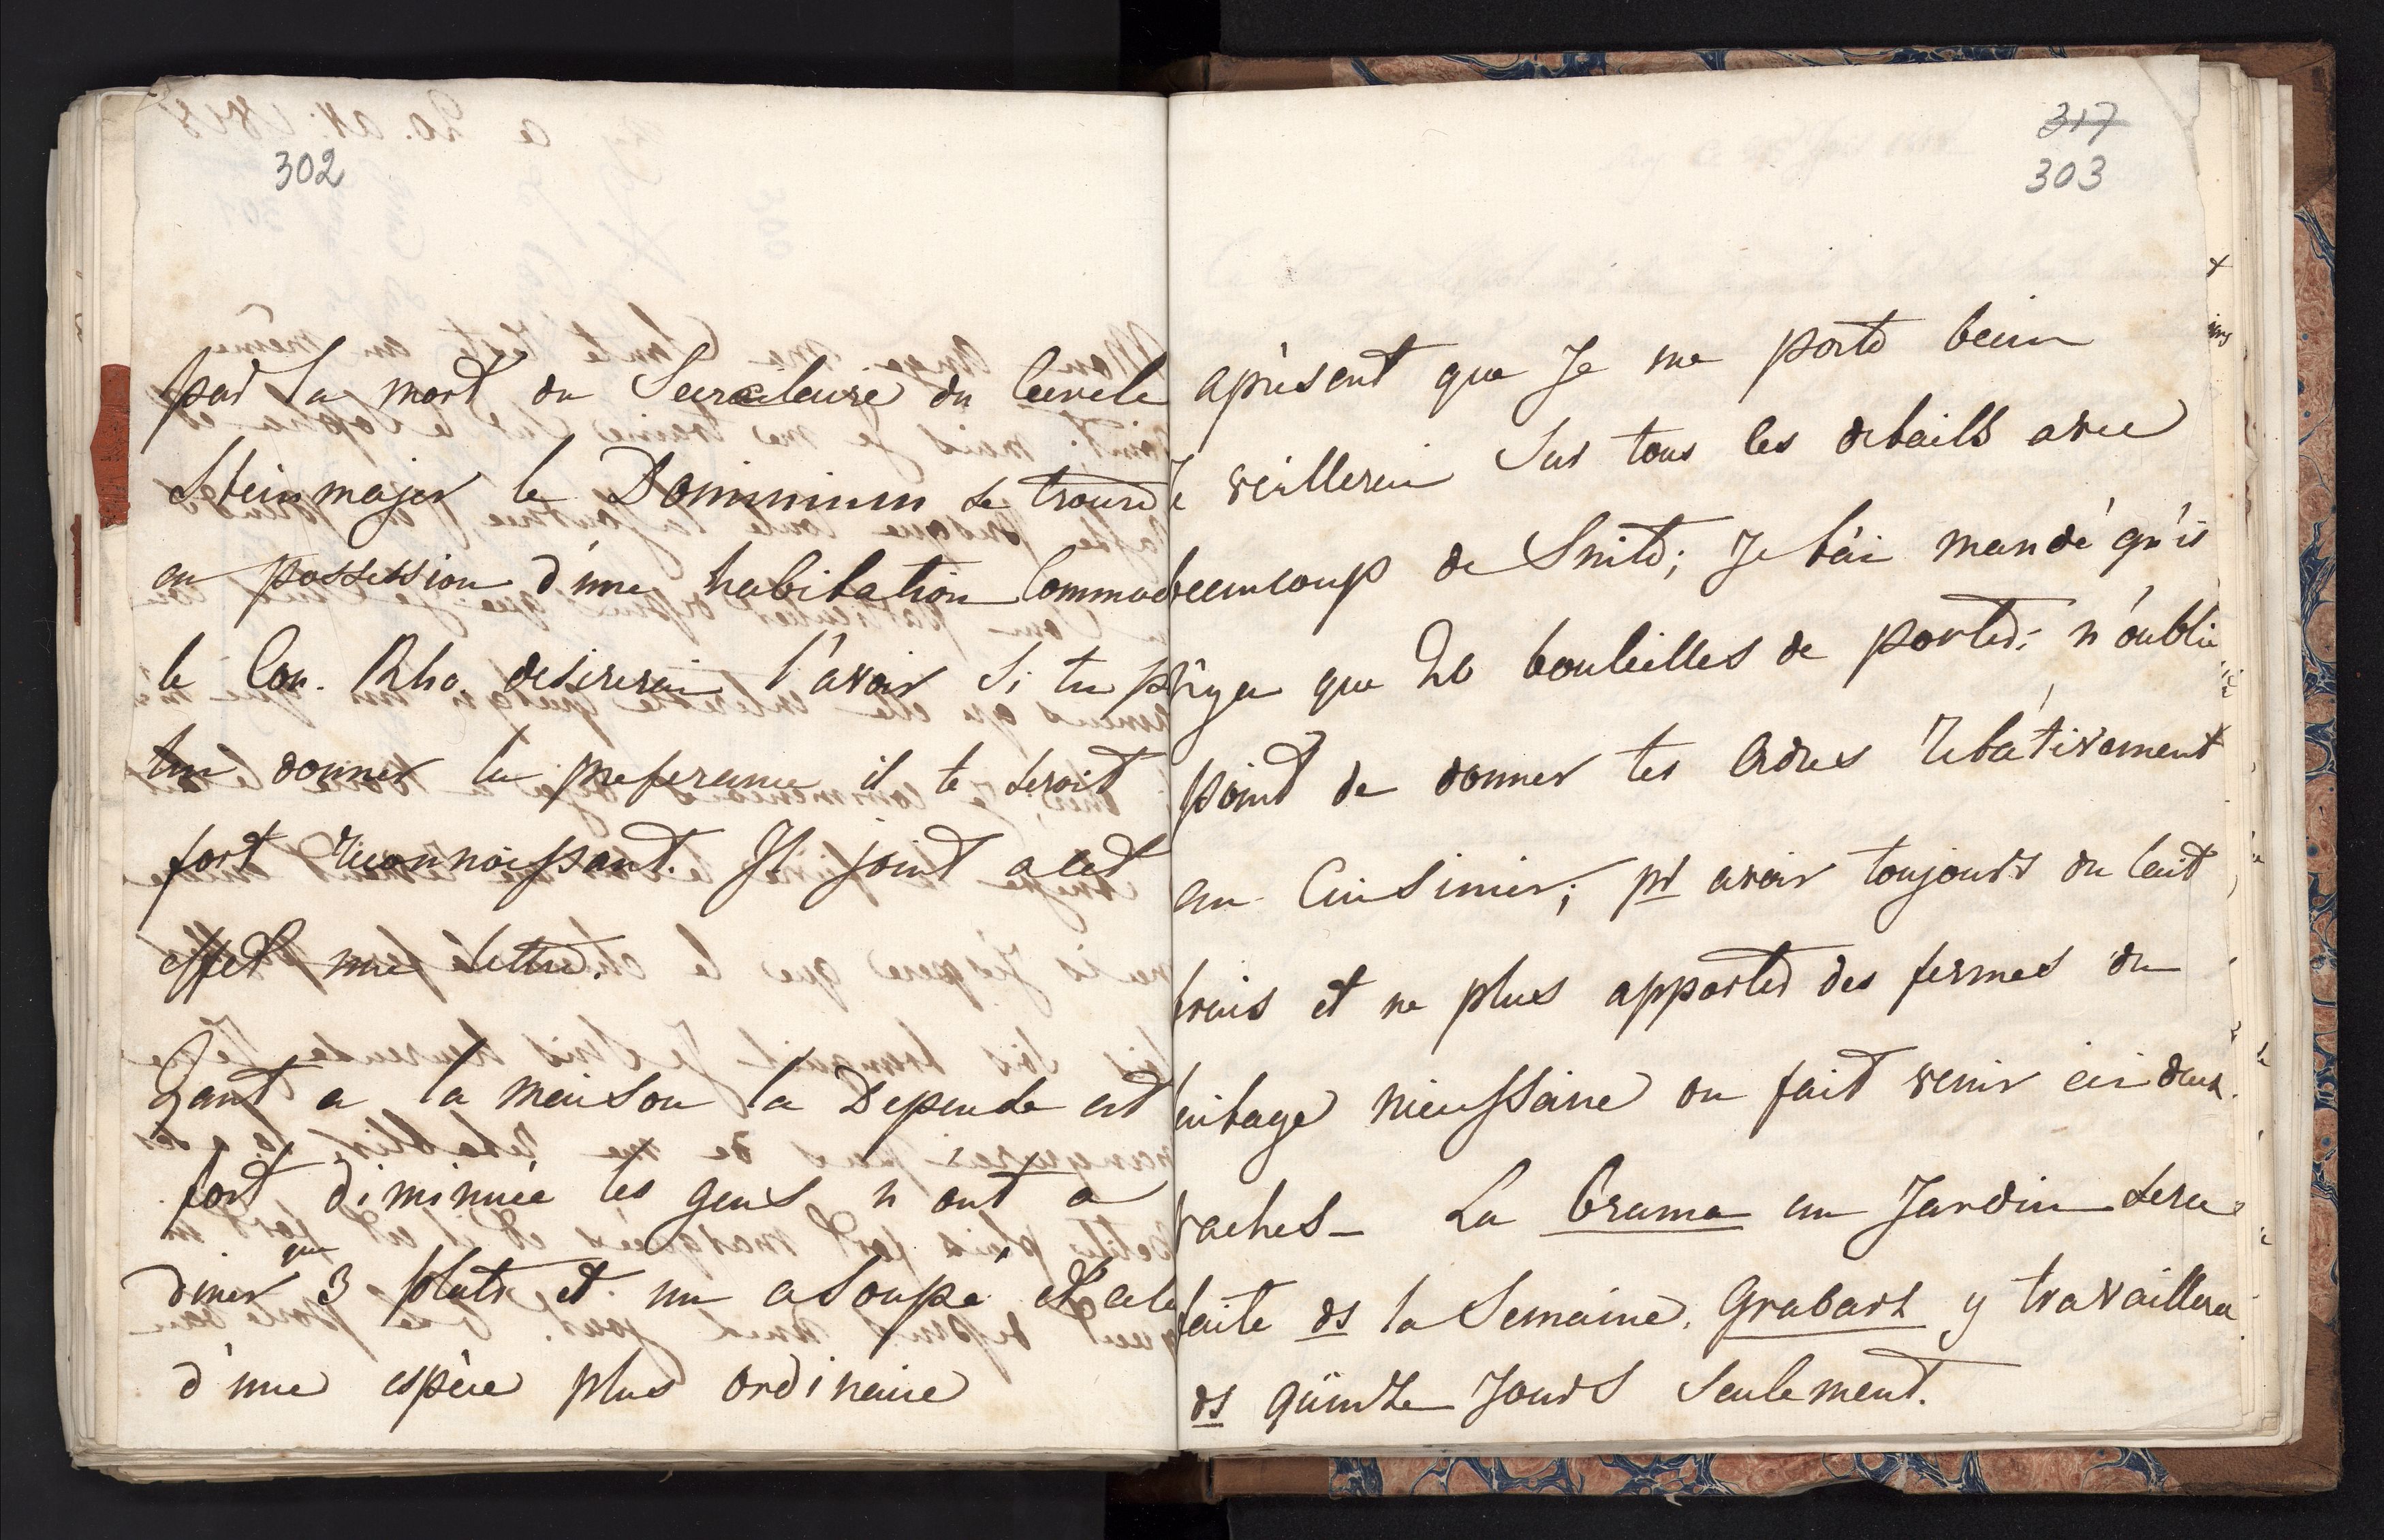 302
par la mort du Secretaire du Cercle
Steinmajer le Dominium se trouve
en possession d'une habitation Commode
le Con. Rho. desirerai l'avoir si tu p
lui donner la preferance il te seroit
fort reconnoissant. Il joint a cet
effet une lettre.
Qant a la maison la Depende est
fort diminuée les gens n'ont a
diner que 3 plats et un a Soupé et cela
d'une espèce plus ordinaire
317
303
aprèsent que Je me porte bein
Je veillerai Sur tous les details avec
beaucoup de Suite; Je t'ai mandé qu'il
n'y a que 26 bouteilles de porter; n'oublie
point de donner tes Ordres rélativement
au Cuisinier; pr avoir toujours du lait
frais et ne plus apporter des fermes du
laitage nieussaire on fait venir ici deux
vaches - La Brama au Jardin sera
faite ds la Semaine. Grabarz y travaillera
ds quinze Jours Seulement.